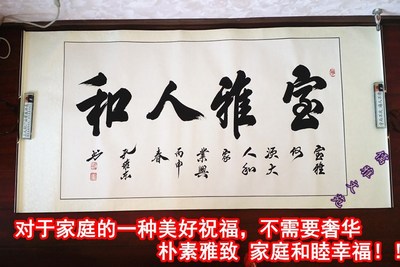 室雅人和
室雅
何
須大
人和
家
業興
丙申
春
对于家庭的一种美好祝福，不需要奢华
朴素雅致 家庭和睦幸福！！